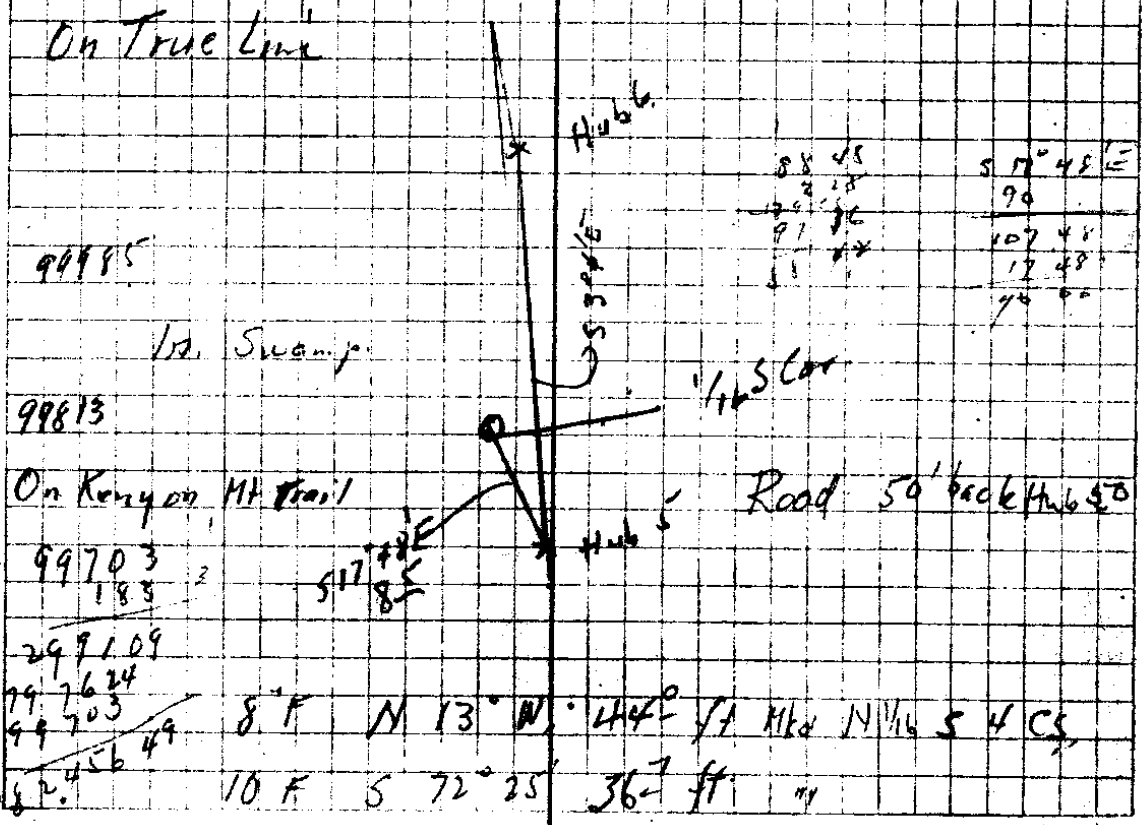 On True Line
Hub 6.
88 45
S 17° 48' E
90
97 16
107 48
17 48
90 00
99985
1st. Swamp.
1/16 S Cor
99813
On Kenyon Mt Trail
Road 50' back Hub 50
Hub 5
99703
183
S 17° 48' E
85
299109
797624
99703
82.45649
8" F N 13° W, 44° ft Mkd N 1/16 S 4 CS,
10 F S 72° 25' 36-7 ft "